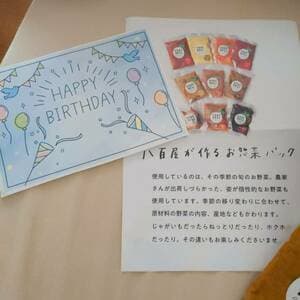 HAPPY
BIRTHDAY
八百屋が作るお惣菜パック
使用しているのは、その季節の旬のお野菜。農家
さんが出荷しづらかった、姿が個性的なお野菜も
使用しています。季節の移り変わりに合わせて、
原材料の野菜の内容、産地などもかわります。
じゃがいもだったらねっとりだったり、ホクホク
だったり。その違いもお楽しみくださいませ。